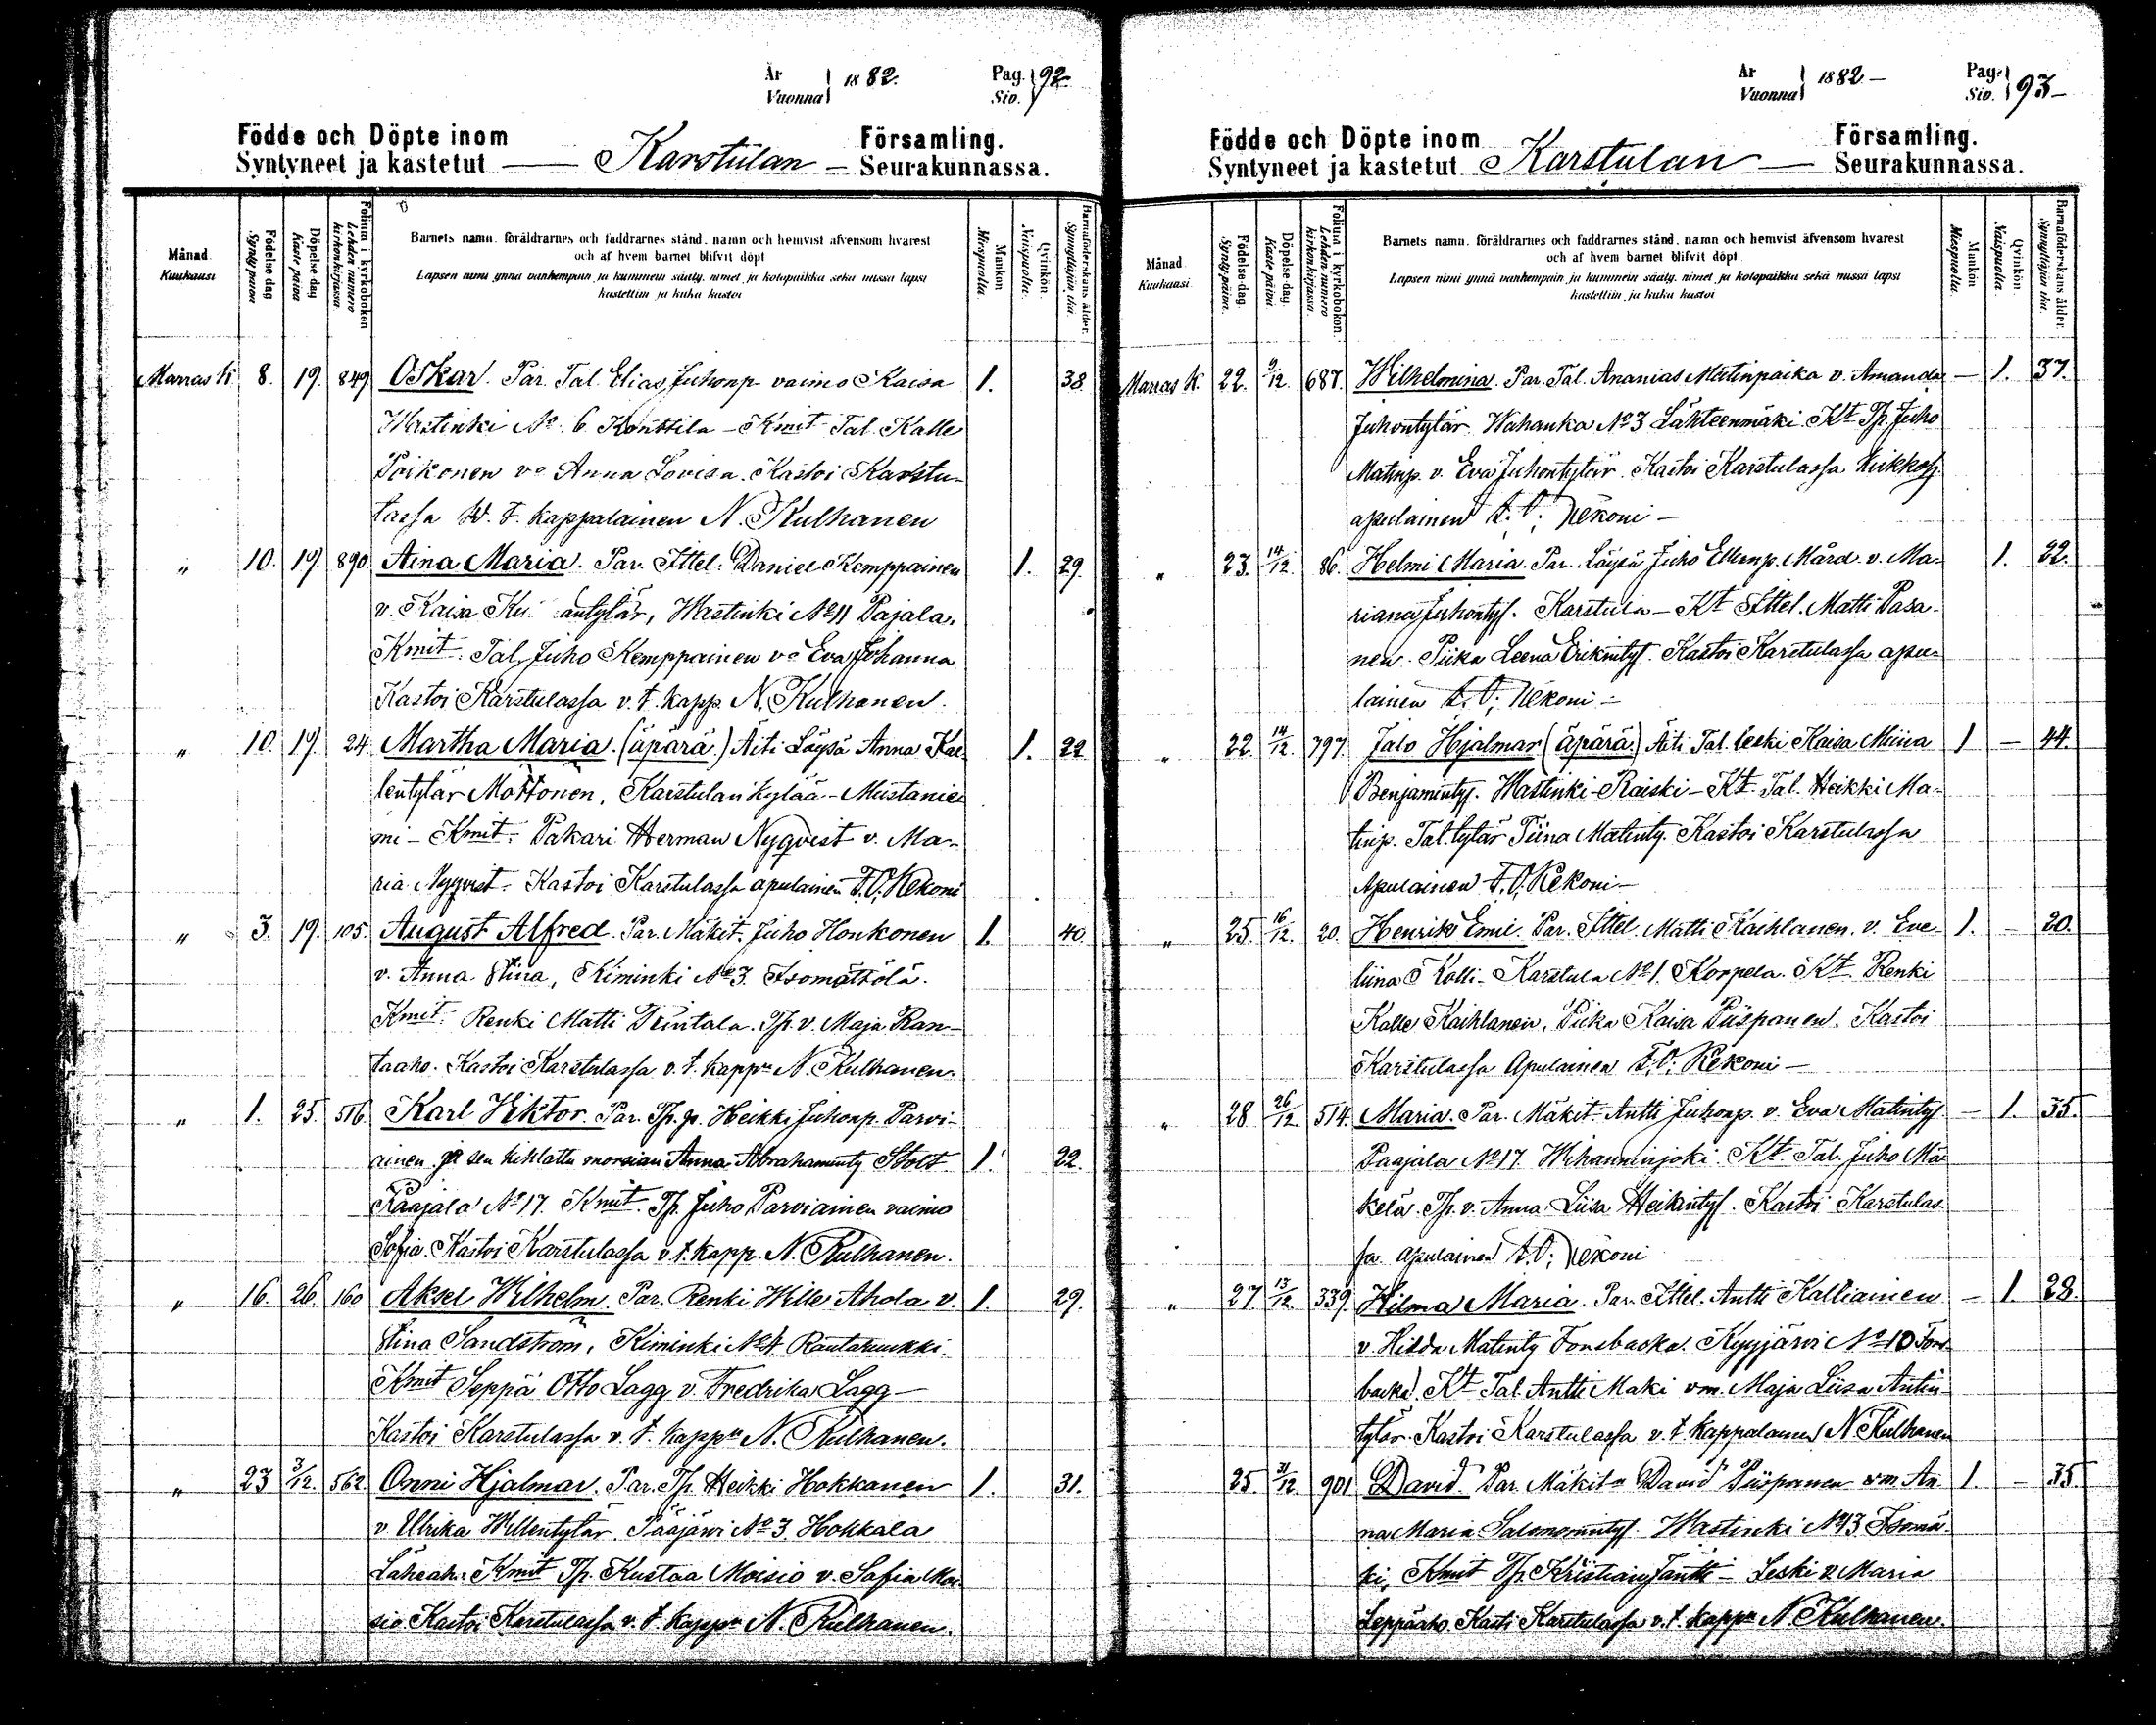 År
Vuonna 1882.
Pag.
Siv. 92.
Födde och Döpte inom Församling.
Syntyneet ja kastetut — Karstulan — Seurakunnassa.
Månad
Kuukausi
Födelse dag
Synty päivä
Döpelse dag
Kaste päivä
Folium i kyrkoboken
Lehden numero kirkonkirjassa.
Barnets namn, föräldrarnes och faddrarnes stånd, namn och hemvist äfvensom hvarest
och af hvem barnet blifvit döpt
Lapsen nimi ynnä vanhempain ja kummein sääty, nimet ja kotopaikka sekä missä lapsi
kastettiin ja kuka kastoi
Mankön
Miespuolta
Qvinkön.
Naispuolta.
Barnaföderskans ålder.
Synnyttäjän ikä.
Marras k. 8. 19. 849. Oskar. Par. Tal. Elias Juhonp. vaimo Kaisa 1. 38.
Wastinki No. 6 Konttila – Kmit Tal. Kalle
Poikonen vo Anna Lovisa. Kastoi Karstu-
lassa W. T. kappalainen N. Kulhanen
" 10. 19. 890. Aina Maria. Par. Ittel. Daniel Kemppainen 1. 29.
v. Kaisa antytär, Wastinki No 11 Pajala.
Kmit. Tal. Juho Kemppainen vo Eva Johanna
Kastoi Karstulassa v. t. kapp. N. Kulhanen.
" 10. 19. 24. Martha Maria. (äpärä.) Äiti Löysä Anna Kal- 1. 22
lentytär Möttönen, Karstulan kylää – Mustanie-
mi – Kmit. Pakari Herman Nyqvist v. Ma-
ria Nyqvist. Kastoi Karstulassa apulainen F. O. Kekoni
" 3. 19. 105. August Alfred. Par. Mäkit. Juho Honkonen 1. 40.
v. Anna Stina, Kiminki No 3. Isomattölä.
Kmit. Renki Matti Dintala. Tp. v. Maja Ran-
taaho. Kastoi Karstulassa v. t. kappn N. Kulhanen.
" 1. 25. 516. Karl Viktor. Par. Tp. p. Heikki Juhonp. Parvi-
ainen ja sen kihlattu morsian Anna Abrahaminty Stolt 1. 22.
Paajala No 17. Kmit. Tp. Juho Parviainen vaimo
Sofia. Kastoi Karstulassa v. t. kapp. N. Kulhanen.
" 16. 26. 160 Aksel Wilhelm. Par. Renki Wille Ahola v. 1. 29.
Stina Sandstrom, Kiminki No 4 Rautakukki.
Kmit Seppä Otto Lagg v. Fredrika Lagg –
Kastoi Karstulassa v. t. kappn N. Kulhanen.
" 23 3/12. 562. Onni Hjalmar. Par. Tp. Heikki Hokkanen 1. 31.
v. Ulrika Willentytär. Pääjärvi No 3. Hokkala
Läheah. Kmit Tp. Kustaa Moisio v. Sofia Moi-
sio Kastoi Karstulassa v. t. kappn N. Kulhanen.
År
Vuonna 1882 –
Pag.
Siv. 93 –
Födde och Döpte inom Församling.
Syntyneet ja kastetut Karstulan — Seurakunnassa.
Månad
Kuukausi
Födelse-dag.
Synty-päivä.
Döpelse-dag.
Kaste-päivä
Folium i kyrkoboken
Lehden numero kirkonkirjassa.
Barnets namn, föräldrarnes och faddrarnes stånd, namn och hemvist äfvensom hvarest
och af hvem barnet blifvit döpt
Lapsen nimi ynnä vanhempain ja kummein sääty, nimet ja kotopaikka sekä missä lapsi
kastettiin ja kuka kastoi
Mankön
Miespuolta.
Qvinkön.
Naispuolta.
Barnaföderskans ålder.
Synnyttäjän ikä.
Marras k. 22. 9/12. 687. Wilhelmina. Par. Tal. Ananias Matinpaika v. Amanda – 1. 37.
Juhontytär Wahanka No 3 Lähteenmäki. Kt Tp. Juho
Matinp. v. Eva Juhontytär. Kastoi Karstulassa kirkkoh.
apulainen F. O. Kekoni –
" 23. 14/12. 86. Helmi Maria. Par. Löysä Juho Ellianp. Mård. v. Ma- 1. 22.
riana Juhontyt. Karstula – Kt Ittel. Matti Pasa-
nen. Piika Leena Erikintyt. Kastoi Karstulassa apu-
lainen F. O. Kekoni –
" 22. 14/12. 797. Jalo Hjalmar (äpärä.) Äiti Tal. leski Kaisa Miina 1 – 44.
Benjaminty. Wastinki – Raiski – Kt. Tal. Heikki Ma-
tinp. Tal. tytär Tiina Matinty. Kastoi Karstulassa
Apulainen F. O. Kekoni –
" 25. 16/12. 20. Henrik Emil. Par. Ittel. Matti Kaihlanen. v. Eve- 1. – 20.
liina Kolli – Karstula No 1. Korpela. Kt. Renki
Kalle Kaihlanen, Piika Kaisa Piispanen. Kastoi
Karstulassa Apulainen F. O. Kekoni –
" 28 26/12. 514. Maria. Par. Mäkit. Antti Juhonp. v. Eva Matintyt. – 1. 35.
Paajala No 17. Wihanninjoki. Kt. Tal. Juho Mä-
kelä. Tp. v. Anna Liisa Heikintyt. Kastoi Karstulas-
sa apulainen F. O. Kekoni
" 27 13/12. 339. Hilma Maria. Par. Ittel. Antti Kalliainen – 1. 28.
v. Hilda Matinty Fonsbacka. Kyyjärvi No 10 Fons-
backa. Kt Tal. Antti Maki vm. Maja Liisa Antin-
tytär. Kastoi Karstulassa v. t. kappalainen N Kulhanen
25. 31/12. 901 David. Par. Mäkitn David Piispanen vm. An- 1. – 35.
na Maria Salomonintyt. Wastinki No 13 Isomä-
ki, Kmit Tp. Kristian Jäntti – Leski v Maria
Leppäaho. Kasti Karstulassa v. t. kappn N. Kulhanen.